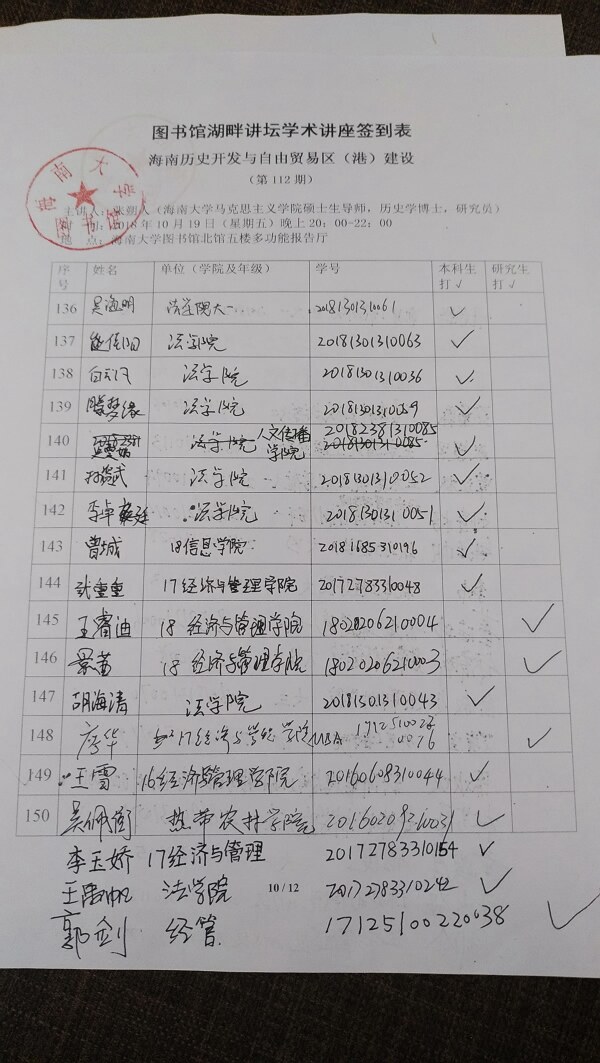 图书馆湖畔讲坛学术讲座签到表
海南历史开发与自由贸易区（港）建设
（第112期）
主讲人：张朔人（海南大学马克思主义学院硕士生导师，历史学博士，研究员）
时 间：2018年10月19日（星期五）晚上20：00-22：00
地 点：海南大学图书馆北馆五楼多功能报告厅
序号 姓名 单位（学院及年级） 学号 本科生打√ 研究生打√
136 吴海明 法学院大一 20181301310061 √
137 熊佳阳 法学院 20181301310063 √
138 法学院 20181301310036 √
139 滕梦缘 法学院 20181301310059 √
140 法学院 人文传播学院 20182381310085 20181301310085 √
141 法学院 20181301310052 √
142 李卓 法学院 20181301310051 √
143 曾城 18信息学院 20181685310196 √
144 张重重 17经济与管理学院 20172783310048 √
145 王睿迪 18 经济与管理学院 18020206210004 √
146 景茜 18 经济与管理学院 18020206210003 √
147 胡海清 法学院 20181301310043 √
148 17经济与管理学院MBA 171251002 0076 √
149 王雪 16经济与管理学院 20160608310044 √
150 吴佩衡 热带农林学院 √
李玉娇 17经济与管理 20172783310154 √
法学院 20172783310242 √
10 / 12
郭剑 经管 17125100220038 √